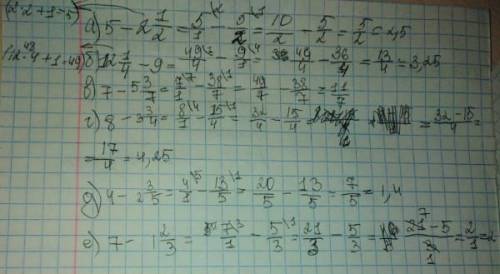 (2·2+1=5) а) 5 - 2 1/2 = 5/1 \2 - 5/2 \1 = 10/2 - 5/2 = 5/2 = 2,5
(12·4+1=49) б) 12 1/4 - 9 = 49/4 - 9/1 \4 = 49/4 - 36/4 = 13/4 = 3,25
в) 7 - 5 3/7 = 7/1 \7 - 38/7 \1 = 49/7 - 38/7 = 11/7
г) 8 - 3 3/4 = 8/1 \4 - 15/4 \1 = 32/4 - 15/4 = = 32-15/4 =
= 17/4 = 4,25
д) 4 - 2 3/5 = 4/1 \5 - 13/5 \1 = 20/5 - 13/5 = 7/5 = 1,4
е) 7 - 1 2/3 = 7/1 \3 - 5/3 \1 = 21/3 - 5/3 = 21 7-5/3 1 = 2/1 = 2